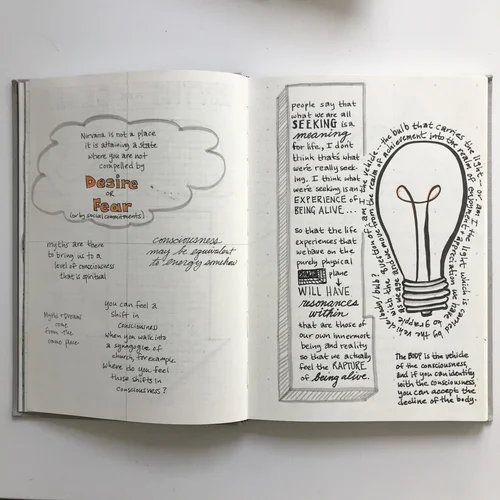 Nirvana is not a place
it is attaining a state
where you are not
compelled by
Desire
or
Fear
(or by social commitments)
myths are there
to bring us to a
level of consciousness
that is spiritual
consciousness
may be equivalent
to energy somehow
Myth + Dream
come
from the
same place
you can feel a
shift in
consciousness
when you walk into
a synagogue or
church, for example.
Where do you feel
those shifts in
consciousness?
people say that
what we are all
SEEKING is a
meaning
for life, I don't
think that's what
we're really seek-
ing. I think what
we're seeking is an
EXPERIENCE OF
BEING ALIVE...
so that the life
experiences that
we have on the
purely physical
plane
WILL HAVE
resonances
within
that are those of
our own innermost
being and reality
so that we actually
feel the RAPTURE
of being alive.
the vehicle - the bulb that carries the light - or, am I the light which is carried by the vehicle/light/bulb?
The BODY is the vehicle
of the consciousness,
and if you can identify
with the consciousness,
you can accept the
decline of the body.